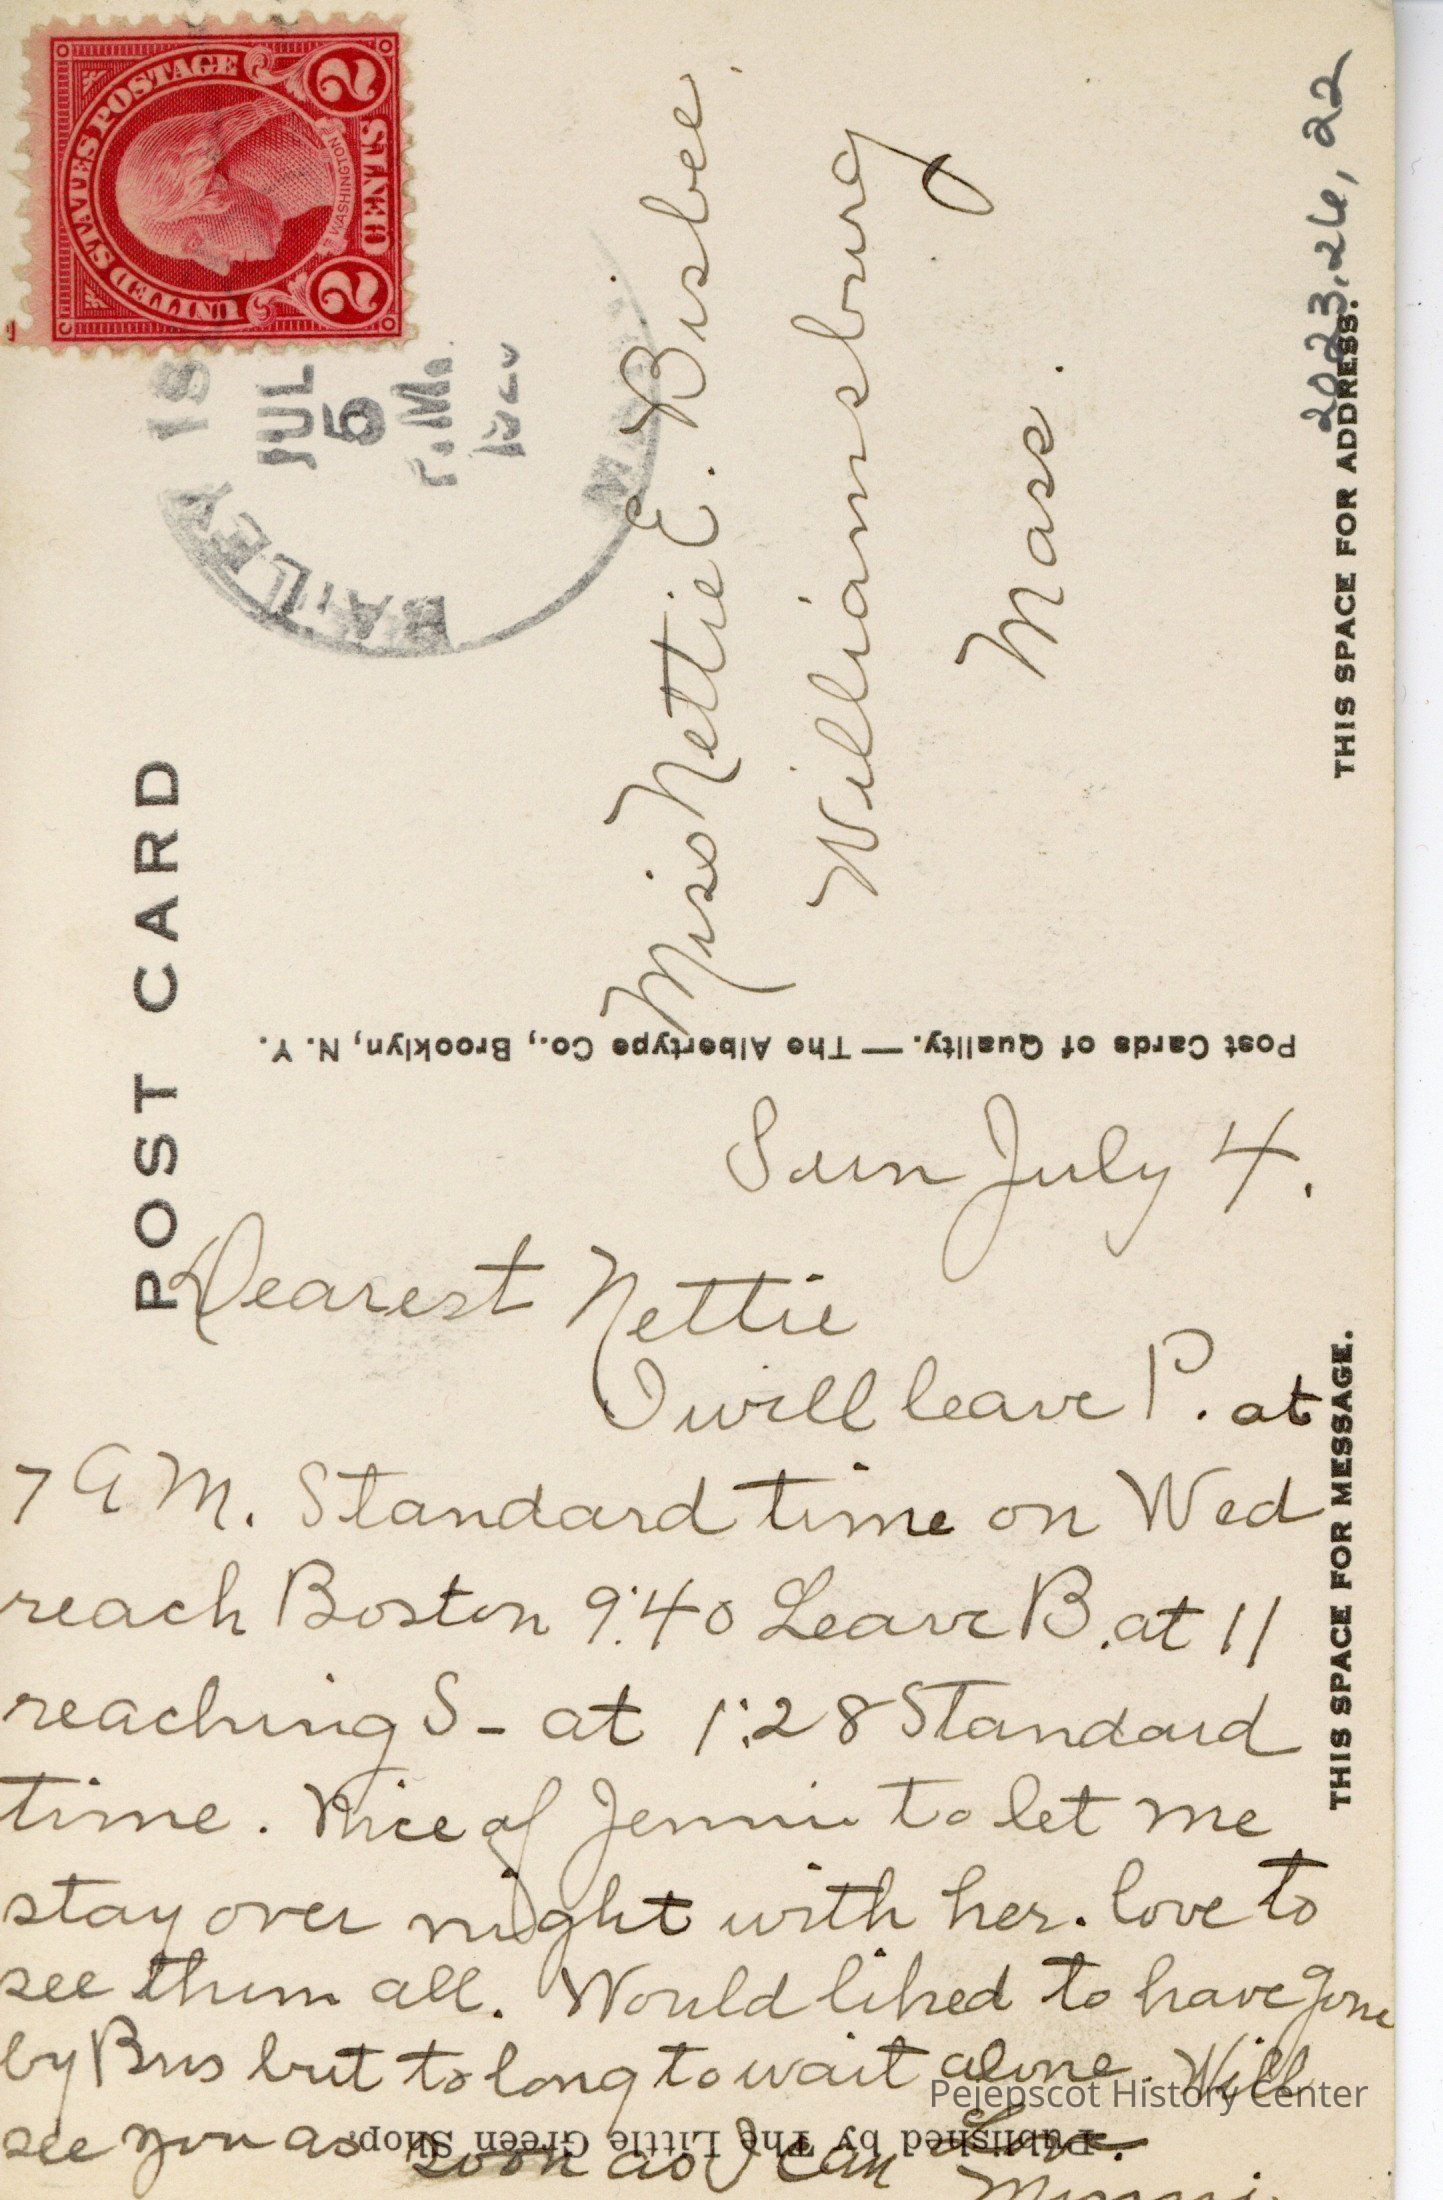 UNITED STATES POSTAGE
WASHINGTON
2 CENTS 2
BAILEY IS
JUL
5
P.M.
POST CARD
Miss Nettie E. Bisbee
Williamsburg
Mass.
2023.26.22
THIS SPACE FOR ADDRESS.
Post Cards of Quality. — The Albertype Co., Brooklyn, N. Y.
Sun July 4.
Dearest Nettie
I will leave P. at
7 A M. Standard time on Wed
reach Boston 9:40 Leave B. at 11
reaching S - at 1:28 Standard
time. Nice of Jennie to let me
stay over night with her. love to
see them all. Would liked to have gone
by Bus but to long to wait alone. Will
see you as soon as I can Love.
THIS SPACE FOR MESSAGE.
Published by The Little Green Shop.
Pejepscot History Center